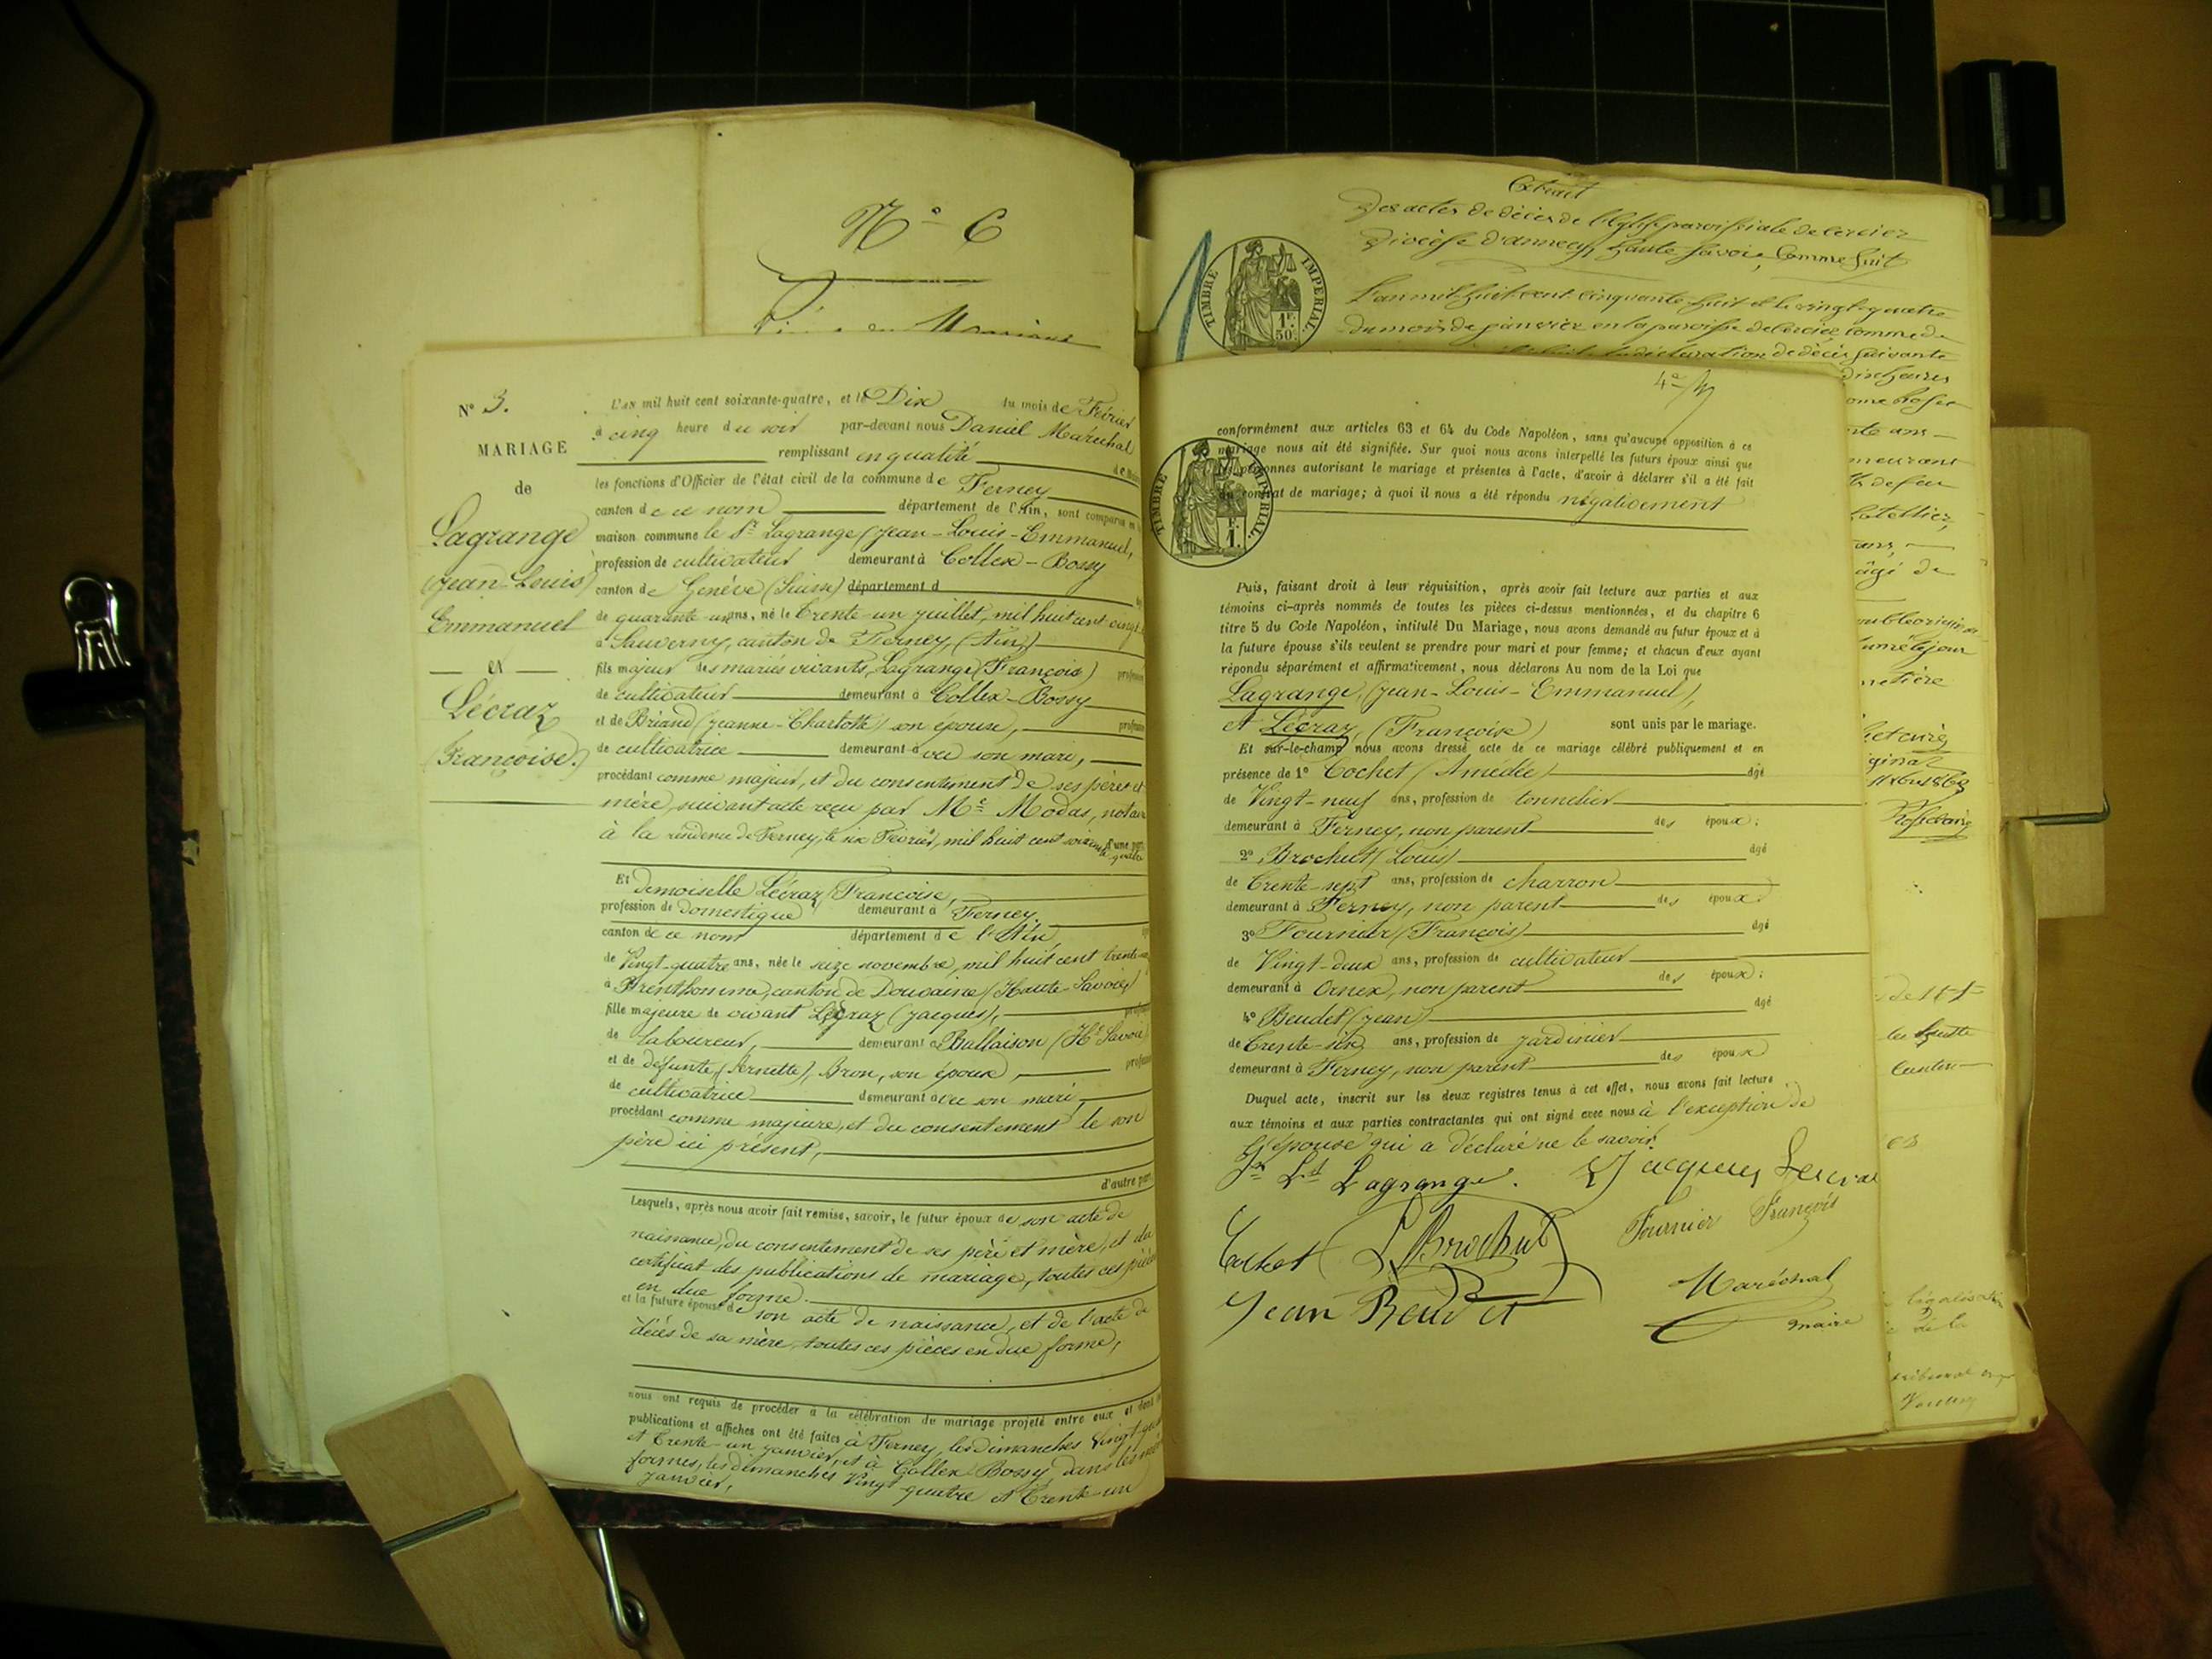 N° 6
N° 3.
MARIAGE
de
Lagrange
(Jean-Louis)
Emmanuel
et
Lécraz
(Françoise)
L'an mil huit cent soixante-quatre, et le Dix du mois de Février
à cinq heure du soir par-devant nous Daniel Maréchal
remplissant en qualité de maire
les fonctions d'Officier de l'état civil de la commune de Ferney
canton de ce nom département de l'Ain, sont comparus en la
maison commune le Sr Lagrange (Jean-Louis-Emmanuel,
profession de cultivateur demeurant à Collex-Bossy
canton de Genève (Suisse) département d
de quarante-un ans, né le trente-un juillet, mil huit cent vingt
à Sauverny, canton de Ferney, (Ain)
fils majeur des mariés vivants, Lagrange (François) profession
de cultivateur demeurant à Collex-Bossy
et de Briand (Jeanne-Charlotte) son épouse, profession
de cultivatrice demeurant avec son mari,
procédant comme majeur, et du consentement de ses père et
mère, suivant acte reçu par Me Modas, notaire
à la résidence de Ferney, le six Février, mil huit cent soixante quatre d'une part
Et demoiselle Lécraz (Françoise,
profession de domestique demeurant à Ferney.
canton de ce nom département de l'Ain,
de Vingt-quatre ans, née le seize novembre, mil huit cent trente
à Brenthomme, canton de Douvaine (Haute-Savoie)
fille majeure de vivant Lécraz (Jacques), profession
de Laboureur, demeurant à Ballaison (Hte Savoie)
et de défunte (Pernette), Bron, son épouse, profession
de cultivatrice demeurant avec son mari,
procédant comme majeure, et du consentement de son
père ici présent,
d'autre part.
Lesquels, après nous avoir fait remise, savoir, le futur époux de son acte de
naissance, du consentement de ses père et mère, et du
certificat des publications de mariage, toutes ces pièces
en due forme.
et la future épouse de son acte de naissance, et de l'acte de
décès de sa mère, toutes ces pièces en due forme,
nous ont requis de procéder à la célébration du mariage projeté entre eux et dont les
publications et affiches ont été faites à Ferney, les dimanches Vingt-quatre
et trente-un janvier, et à Collex-Bossy, dans les mêmes
formes, les dimanches Vingt-quatre et Trente-un
janvier,
Extrait
Des actes de décès de l'Eglise paroissiale de Cercier
Diocèse d'annecy, haute Savoie, Comme Suit
TIMBRE IMPERIAL
1F. 50c
L'an mil huit cent cinquante huit et le vingt-quatre
du mois de janvier en la paroisse de Cercier, Comme de
déclaration de décès suivante
conformément aux articles 63 et 64 du Code Napoléon, sans qu'aucune opposition à ce
mariage nous ait été signifiée. Sur quoi nous avons interpellé les futurs époux ainsi que
les personnes autorisant le mariage et présentes à l'acte, d'avoir à déclarer s'il a été fait
un contrat de mariage; à quoi il nous a été répondu négativement
TIMBRE IMPERIAL
1F.
Puis, faisant droit à leur réquisition, après avoir fait lecture aux parties et aux
témoins ci-après nommés de toutes les pièces ci-dessus mentionnées, et du chapitre 6
titre 5 du Code Napoléon, intitulé Du Mariage, nous avons demandé au futur époux et à
la future épouse s'ils veulent se prendre pour mari et pour femme; et chacun d'eux ayant
répondu séparément et affirmativement, nous déclarons Au nom de la Loi que
Lagrange, (Jean-Louis-Emmanuel),
et Lécraz, (Françoise) sont unis par le mariage.
Et sur-le-champ nous avons dressé acte de ce mariage célébré publiquement et en
présence de 1° Cochet (Amédée) âgé
de Vingt-neuf ans, profession de tonnelier
demeurant à Ferney, non parent des époux:
2° Brochut (Louis) âgé
de Trente-sept ans, profession de charron
demeurant à Ferney, non parent des époux
3° Fournier (François) âgé
de Vingt-deux ans, profession de cultivateur
demeurant à Ornex, non parent des époux:
4° Beudet (Jean) âgé
de Trente-six ans, profession de jardinier
demeurant à Ferney, non parent des époux
Duquel acte, inscrit sur les deux registres tenus à cet effet, nous avons fait lecture
aux témoins et aux parties contractantes qui ont signé avec nous à l'exception de
l'épouse qui a déclaré ne le savoir.
Jn Ls Lagrange. Jacques
Cochet L. Brochut Fournier François
Jean Beudet Maréchal
maire